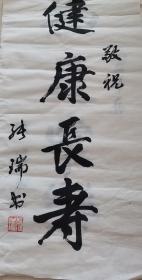 敬祝
健康長寿
張瑞书